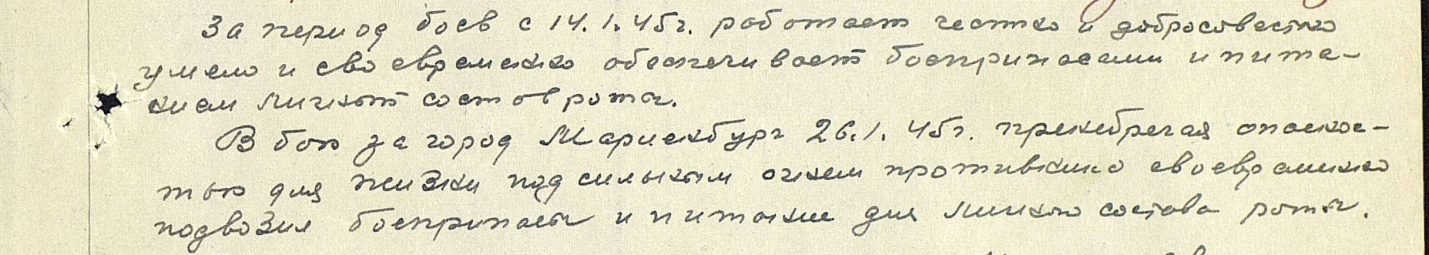 За период боев с 14.1.45г. работает честно и добросовестно
умело и своевременно обеспечивает боеприпасами и пита-
нием личный состав роты.
В бою за город Мариенбург 26.1.45г. пренебрегая опаснос-
тью для жизни под сильным огнем противника своевременно
подвозил боеприпасы и питание для личного состава роты.